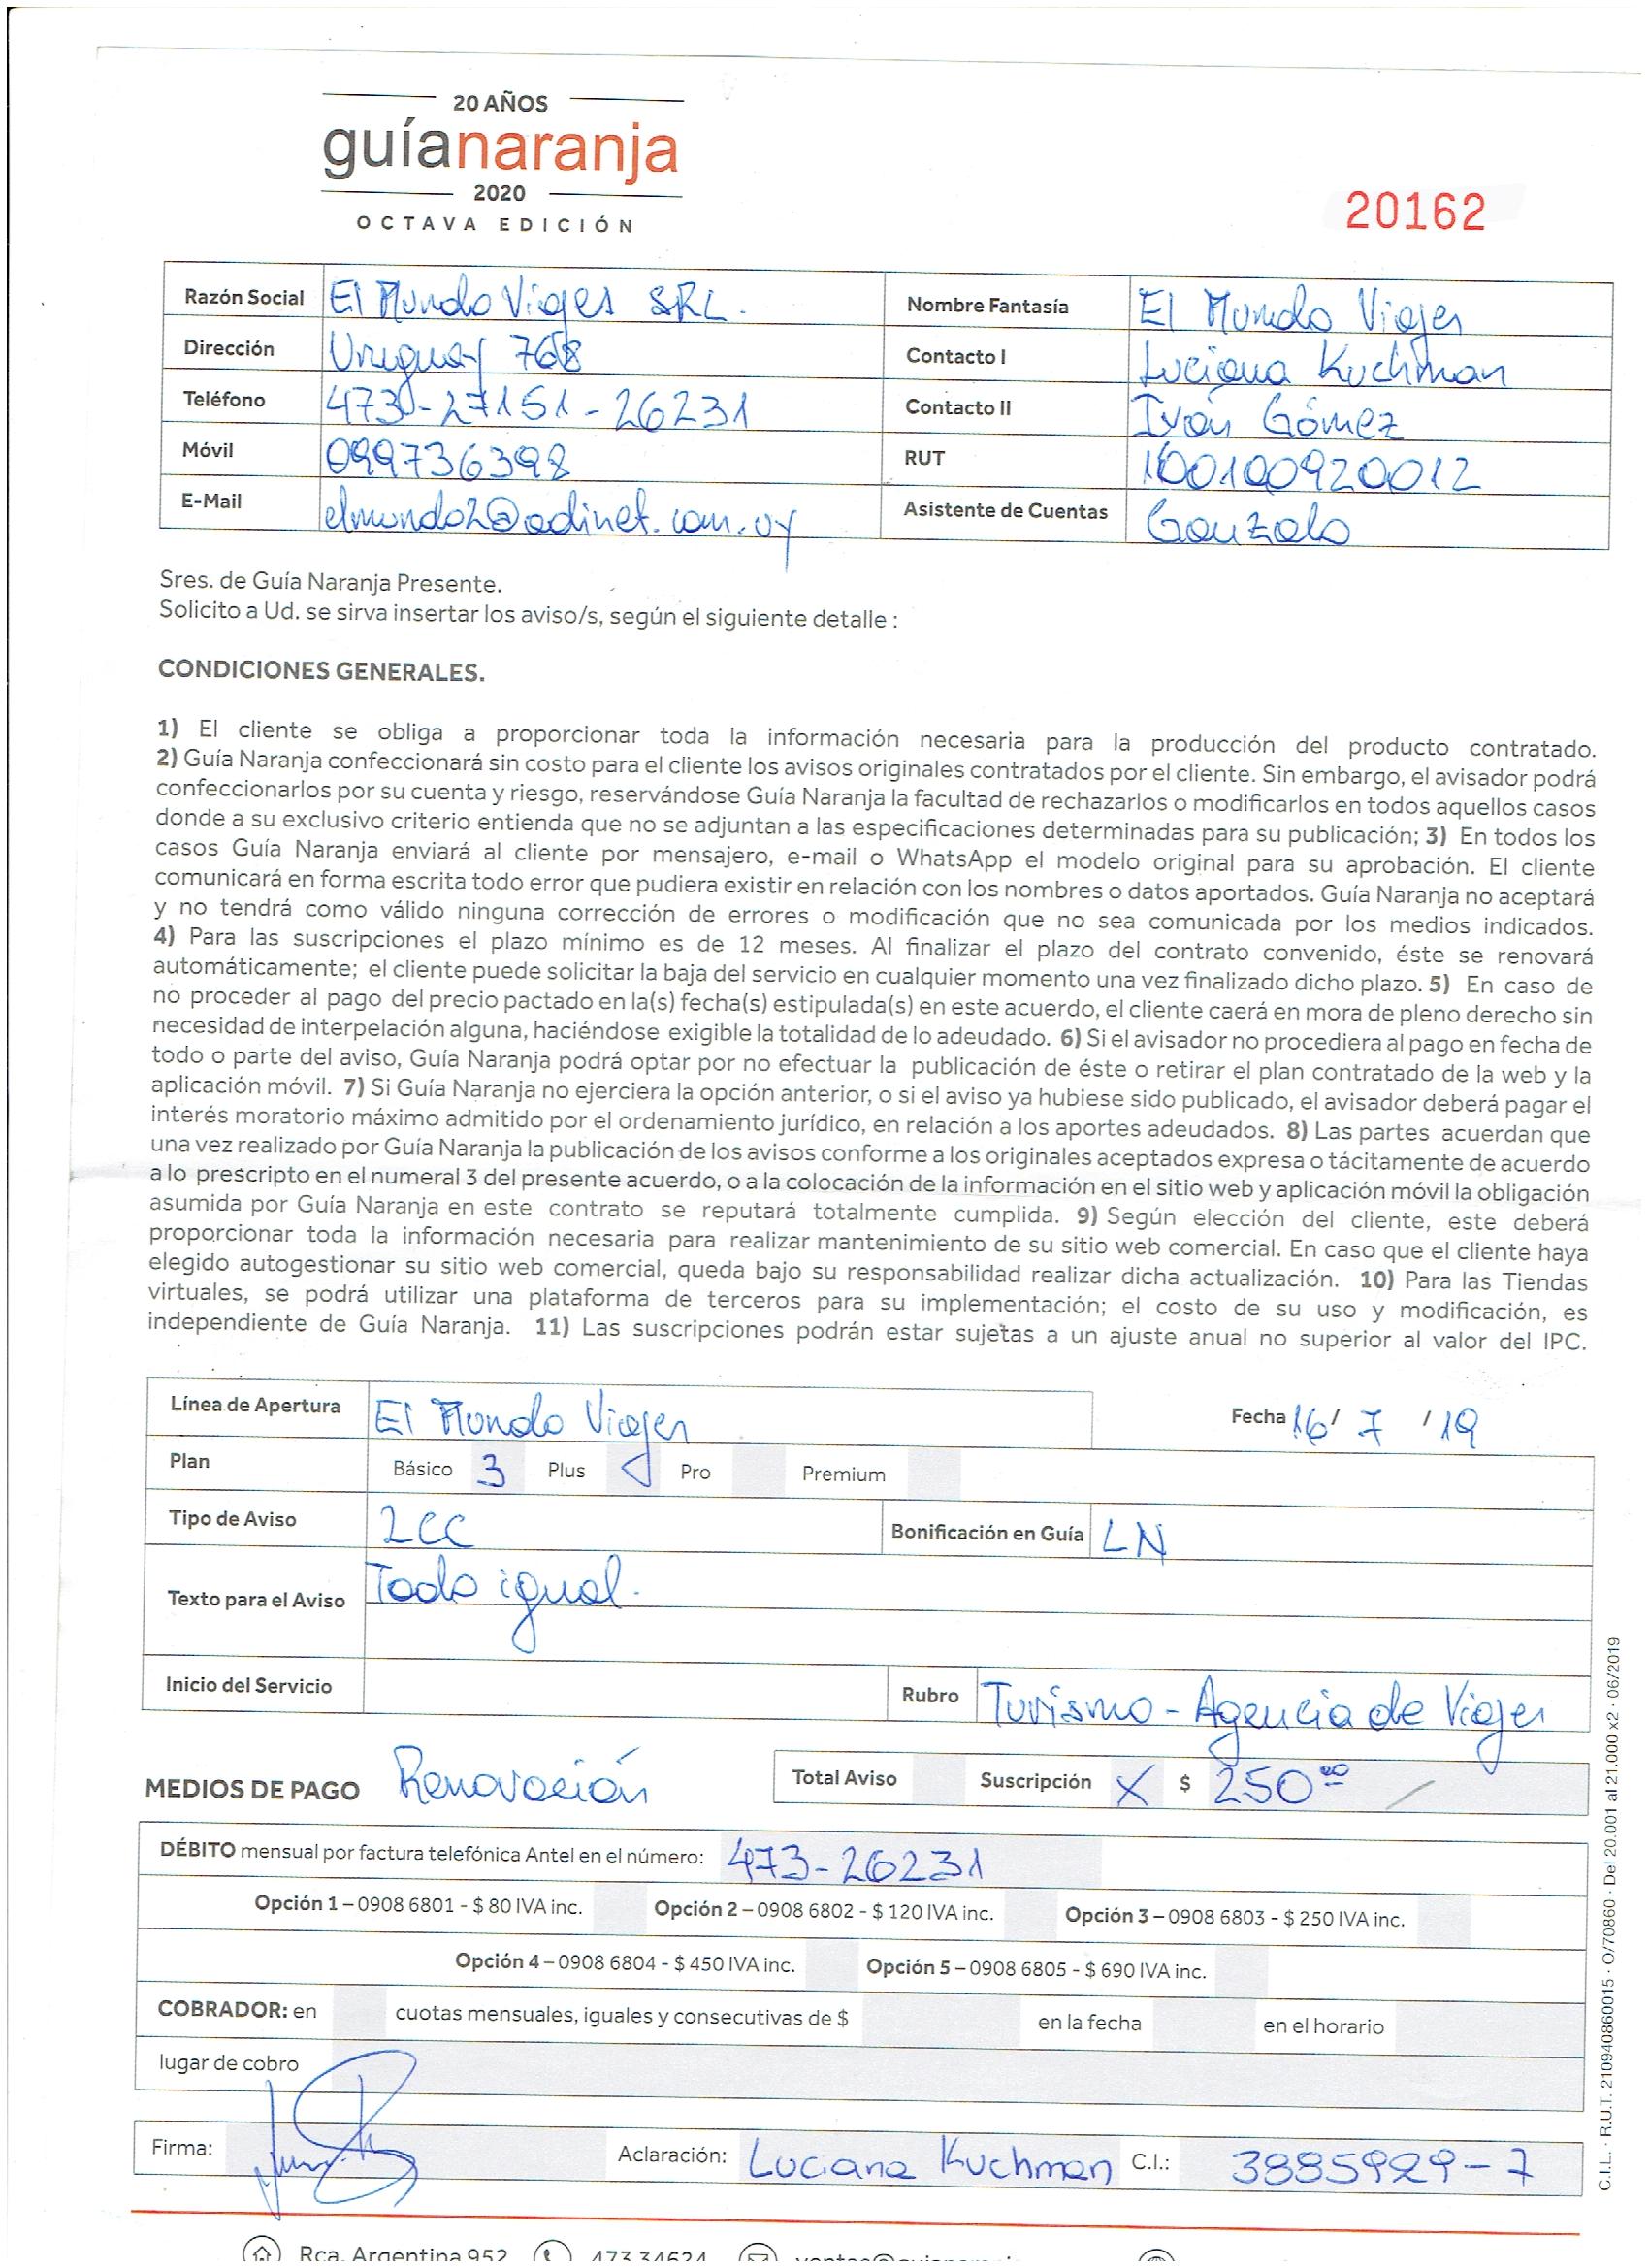 20 AÑOS
guíanaranja
2020
OCTAVA EDICIÓN
20162
Razón Social El Mundo Viajes SRL. Nombre Fantasía El Mundo Viajes
Dirección Uruguay 768 Contacto I Luciana Kuchman
Teléfono 473-27151-26231 Contacto II Iván Gómez
Móvil 099736398 RUT 100100920012
E-Mail elmundo2@adinet.com.uy Asistente de Cuentas Gonzalo
Sres. de Guía Naranja Presente.
Solicito a Ud. se sirva insertar los aviso/s, según el siguiente detalle :
CONDICIONES GENERALES.
1) El cliente se obliga a proporcionar toda la información necesaria para la producción del producto contratado.
2) Guía Naranja confeccionará sin costo para el cliente los avisos originales contratados por el cliente. Sin embargo, el avisador podrá
confeccionarlos por su cuenta y riesgo, reservándose Guía Naranja la facultad de rechazarlos o modificarlos en todos aquellos casos
donde a su exclusivo criterio entienda que no se adjuntan a las especificaciones determinadas para su publicación; 3) En todos los
casos Guía Naranja enviará al cliente por mensajero, e-mail o WhatsApp el modelo original para su aprobación. El cliente
comunicará en forma escrita todo error que pudiera existir en relación con los nombres o datos aportados. Guía Naranja no aceptará
y no tendrá como válido ninguna corrección de errores o modificación que no sea comunicada por los medios indicados.
4) Para las suscripciones el plazo mínimo es de 12 meses. Al finalizar el plazo del contrato convenido, éste se renovará
automáticamente; el cliente puede solicitar la baja del servicio en cualquier momento una vez finalizado dicho plazo. 5) En caso de
no proceder al pago del precio pactado en la(s) fecha(s) estipulada(s) en este acuerdo, el cliente caerá en mora de pleno derecho sin
necesidad de interpelación alguna, haciéndose exigible la totalidad de lo adeudado. 6) Si el avisador no procediera al pago en fecha de
todo o parte del aviso, Guía Naranja podrá optar por no efectuar la publicación de éste o retirar el plan contratado de la web y la
aplicación móvil. 7) Si Guía Naranja no ejerciera la opción anterior, o si el aviso ya hubiese sido publicado, el avisador deberá pagar el
interés moratorio máximo admitido por el ordenamiento jurídico, en relación a los aportes adeudados. 8) Las partes acuerdan que
una vez realizado por Guía Naranja la publicación de los avisos conforme a los originales aceptados expresa o tácitamente de acuerdo
a lo prescripto en el numeral 3 del presente acuerdo, o a la colocación de la información en el sitio web y aplicación móvil la obligación
asumida por Guía Naranja en este contrato se reputará totalmente cumplida. 9) Según elección del cliente, este deberá
proporcionar toda la información necesaria para realizar mantenimiento de su sitio web comercial. En caso que el cliente haya
elegido autogestionar su sitio web comercial, queda bajo su responsabilidad realizar dicha actualización. 10) Para las Tiendas
virtuales, se podrá utilizar una plataforma de terceros para su implementación; el costo de su uso y modificación, es
independiente de Guía Naranja. 11) Las suscripciones podrán estar sujetas a un ajuste anual no superior al valor del IPC.
Línea de Apertura El Mundo Viajes Fecha 16/ 7 /19
Plan Básico 3 Plus Pro Premium
Tipo de Aviso 2CC Bonificación en Guía LN
Texto para el Aviso Todo igual.
Inicio del Servicio Rubro Turismo - Agencia de Viajes
MEDIOS DE PAGO Renovación Total Aviso Suscripción X $ 250 00 /
DÉBITO mensual por factura telefónica Antel en el número: 473-26231
Opción 1 – 0908 6801 - $ 80 IVA inc. Opción 2 – 0908 6802 - $ 120 IVA inc. Opción 3 – 0908 6803 - $ 250 IVA inc.
Opción 4 – 0908 6804 - $ 450 IVA inc. Opción 5 – 0908 6805 - $ 690 IVA inc.
COBRADOR: en cuotas mensuales, iguales y consecutivas de $ en la fecha en el horario
lugar de cobro
Firma: Aclaración: Luciana Kuchman C.I.: 3885929-7
Rca. Argentina 952 473 34624
C.I.L. · R.U.T. 210940860015 · O/70860 · Del 20.001 al 21.000 x2 · 06/2019